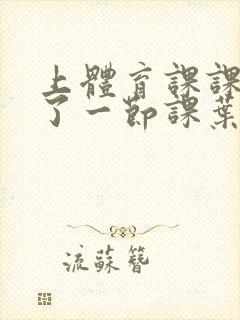 上體育課課
了一節課葉
流蘇簪